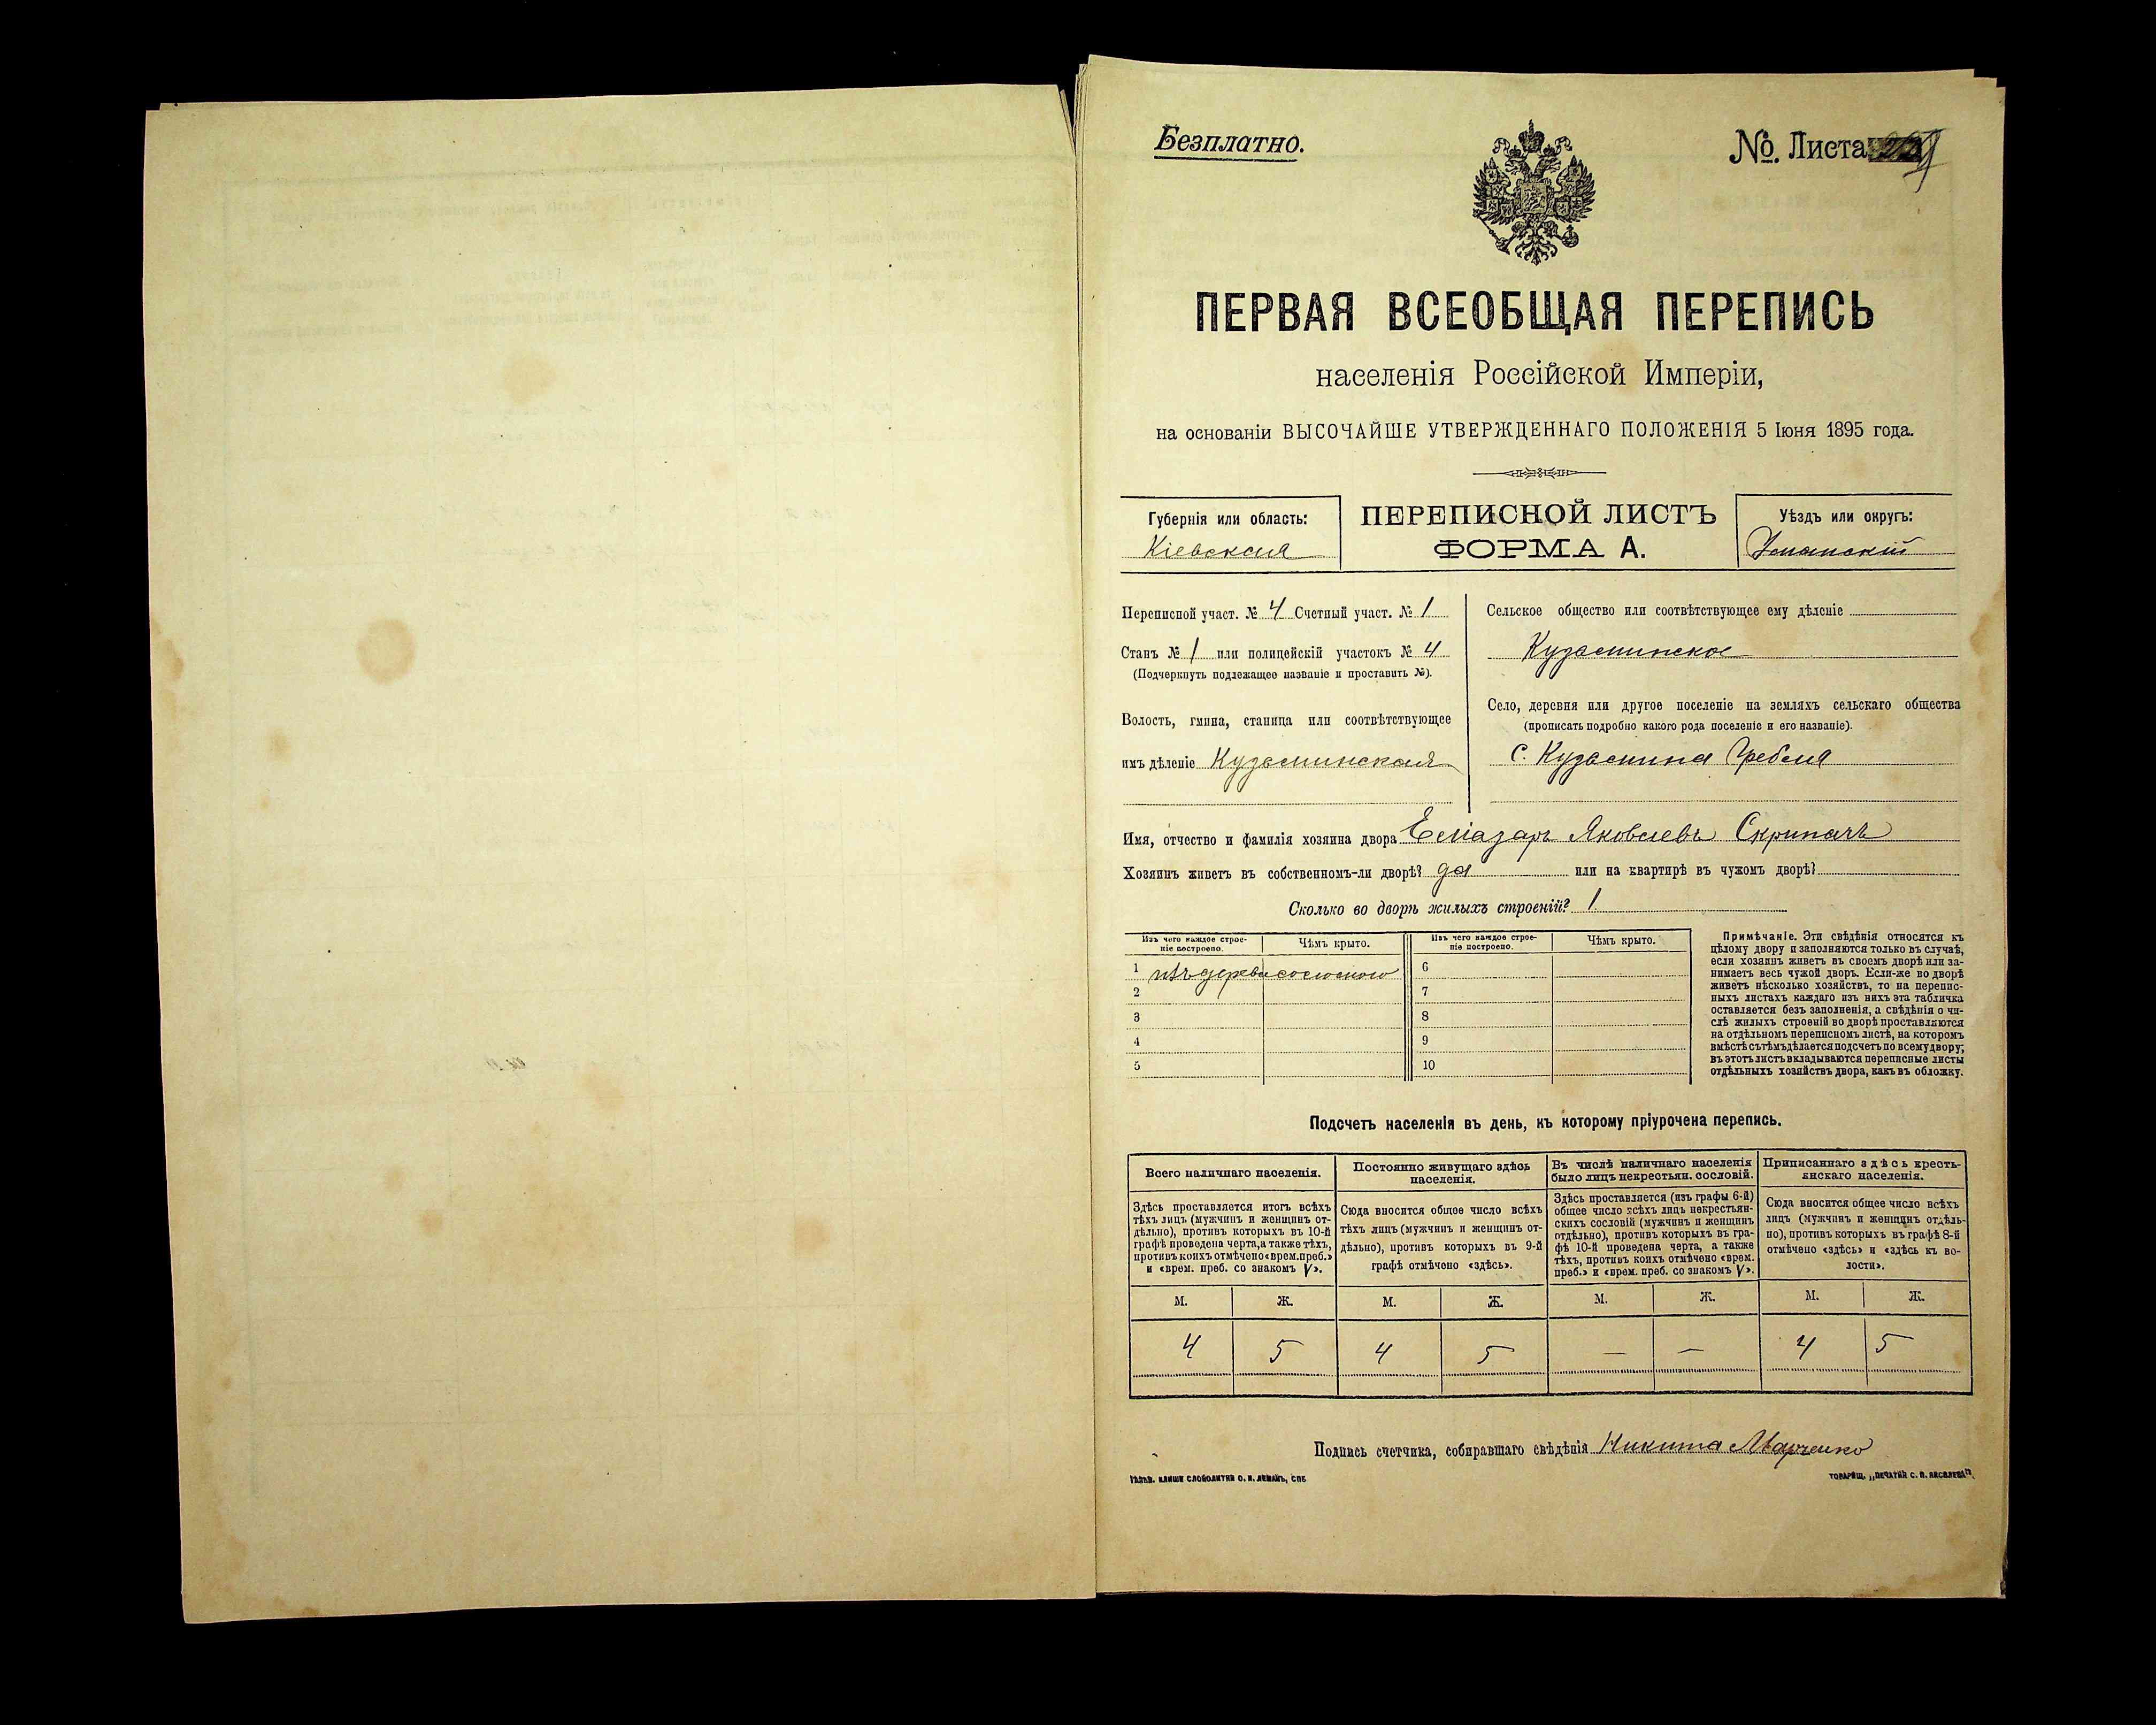 Безплатно.
№. Листа
ПЕРВАЯ ВСЕОБЩАЯ ПЕРЕПИСЬ
населенія Россійской Имперіи,
на основаніи ВЫСОЧАЙШЕ УТВЕРЖДЕННАГО ПОЛОЖЕНІЯ 5 Іюня 1895 года.
Губернія или область:
Кіевская
ПЕРЕПИСНОЙ ЛИСТЪ
ФОРМА А.
Уѣздъ или округъ:
Уманскій
Переписной участ. № 4 Счетный участ. № 1
Станъ № 1 или полицейскій участокъ № 4
(Подчеркнуть подлежащее названіе и проставить №).
Волость, гмина, станица или соотвѣтствующее
имъ дѣленіе Кузьминская
Сельское общество или соотвѣтствующее ему дѣленіе
Кузьминское
Село, деревня или другое поселеніе на земляхъ сельскаго общества
(прописать подробно какого рода поселеніе и его названіе).
С. Кузьмина Гребля
Имя, отчество и фамилія хозяина двора Еліазаръ Яковлевъ Скрипачъ
Хозяинъ живетъ въ собственномъ-ли дворѣ? да или на квартирѣ въ чужомъ дворѣ?
Сколько во дворѣ жилыхъ строеній? 1
Изъ чего каждое строе-
ніе построено.
Чѣмъ крыто.
Изъ чего каждое строе-
ніе построено.
Чѣмъ крыто.
1 изъ дерева соломою
2
3
4
5
6
7
8
9
10
Примѣчаніе. Эти свѣдѣнія относятся къ
цѣлому двору и заполняются только въ случаѣ,
если хозяинъ живетъ въ своемъ дворѣ или за-
нимаетъ весь чужой дворъ. Если-же во дворѣ
живетъ нѣсколько хозяйствъ, то на перепис-
ныхъ листахъ каждаго изъ нихъ эта табличка
оставляется безъ заполненія, а свѣдѣнія о чи-
слѣ жилыхъ строеній во дворѣ проставляются
на отдѣльномъ переписномъ листѣ, на которомъ
вмѣстѣ съ тѣмъ дѣлается подсчетъ по всему двору;
въ этотъ листъ вкладываются переписные листы
отдѣльныхъ хозяйствъ двора, какъ въ обложку.
Подсчетъ населенія въ день, къ которому пріурочена перепись.
Всего наличнаго населенія.
Здѣсь проставляется итогъ всѣхъ
тѣхъ лицъ (мужчинъ и женщинъ от-
дѣльно), противъ которыхъ въ 10-й
графѣ проведена черта, а также тѣхъ,
противъ коихъ отмѣчено «врем. преб.»
и «врем. преб. со знакомъ V».
Постоянно живущаго здѣсь
населенія.
Сюда вносится общее число всѣхъ
тѣхъ лицъ (мужчинъ и женщинъ от-
дѣльно), противъ которыхъ въ 9-й
графѣ отмѣчено «здѣсь».
Въ числѣ наличнаго населенія
было лицъ некрестьян. сословій.
Здѣсь проставляется (изъ графы 6-й)
общее число всѣхъ лицъ некрестьян-
скихъ сословій (мужчинъ и женщинъ
отдѣльно), противъ которыхъ въ гра-
фѣ 10-й проведена черта, а также
тѣхъ, противъ коихъ отмѣчено «врем.
преб.» и «врем. преб. со знакомъ V».
Приписаннаго здѣсь кресть-
янскаго населенія.
Сюда вносится общее число всѣхъ
лицъ (мужчинъ и женщинъ отдѣль-
но), противъ которыхъ въ графѣ 8-й
отмѣчено «здѣсь» и «здѣсь къ во-
лости».
М. Ж. М. Ж. М. Ж. М. Ж.
4 5 4 5 — — 4 5
Подпись счетчика, собиравшаго свѣдѣнія Никита Марченко
СЛОВОЛИТНИ О. И. ЛЕМАНЪ, СПБ
ТОВАРИЩ. „ПЕЧАТНИ С. П. ЯКОВЛЕВА“.